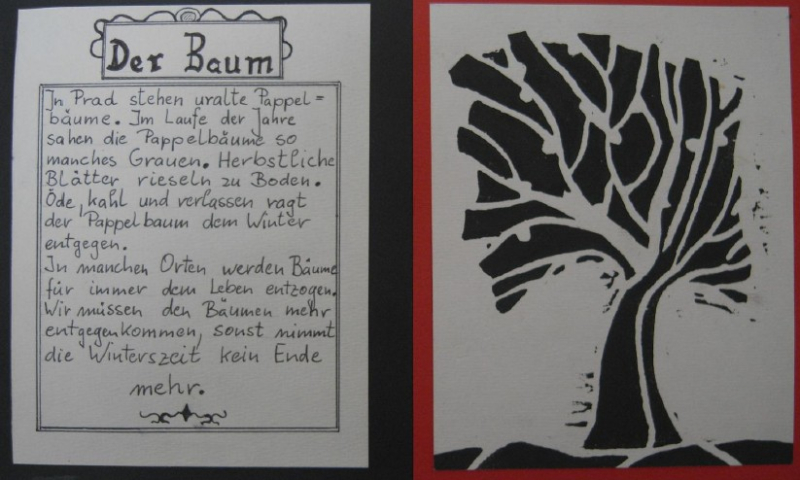 Der Baum
In Prad stehen uralte Pappel=
bäume. Im Laufe der Jahre
sahen die Pappelbäume so
manches Grauen. Herbstliche
Blätter rieseln zu Boden.
Öde, kahl und verlassen ragt
der Pappelbaum dem Winter
entgegen.
In manchen Orten werden Bäume
für immer dem Leben entzogen.
Wir müssen den Bäumen mehr
entgegenkommen, sonst nimmt
die Winterszeit kein Ende
mehr.